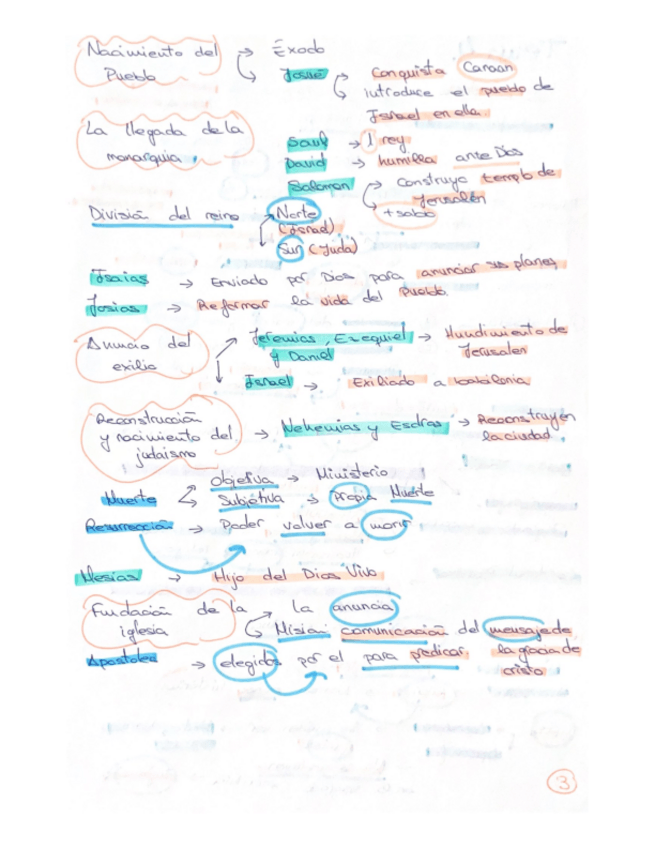 Nacimiento del → Éxodo
Pueblo
Josué → Conquista Canaan
introduce el pueblo de
Israel en ella.
La llegada de la
monarquia.
Saul → 1 rey
David → humilla ante Dios
Salomon → Construye templo de
Jerusalén
+ sabio
División del reino → Norte
(Israel)
Sur (Juda)
Isaias → Enviado por Dios para anunciar sus planes
Josias → Reformar la vida del Pueblo.
Anuncio del
exilio
Jeremias, Ezequiel → Hundimiento de
y Daniel Jerusalen
Israel → Exiliado a babilonia
Reconstrucción
y nacimiento del
judaismo
→ Nehemias y Esdras → Reconstruyen
la ciudad
Muerte
Objetiva → Ministerio
Subjetiva → Propia Muerte
Resurrección → Poder volver a morir
Mesias → Hijo del Dios Vivo
Fundación de la
iglesia
→ la anuncia
Misión comunicación del mensaje de
la gracia de
cristo
Apostoles → elegidos por el para predicar
3